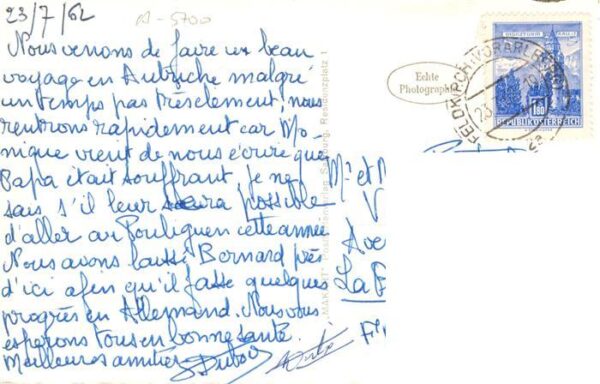 23/7/62
A-5700
Nous venons de faire un beau
voyage en Autriche malgré
un temps pas très clement, nous
rentrons rapidement car Mo-
nique vient de nous écrire que
Papa était souffrant je ne
sais s'il leur sera possible
d'aller au Pouliguen cette année
Nous avons laissé Bernard près
d'ici afin qu'il fasse quelques
progrès en Allemand. Nous vous
espérons tous en bonne santé.
Meilleures amitiés
Echte
Photographie
FELDKIRCH VORARLBERG
23
1.80
REPUBLIK ÖSTERREICH
Salzburg, Residenzplatz 1
Mr et M
V
Ave
La B